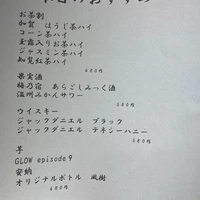 おすすめ
お茶割
加賀 ほうじ茶ハイ
コーン茶ハイ
玉露入りお茶ハイ
ジャスミン茶ハイ
知覧紅茶ハイ
480円
果実酒
梅乃宿 あらごしみっく酒
温州みかんサワー
580円
ウイスキー
ジャックダニエル ブラック
ジャックダニエル テネシーハニー
580円
芋
GLOW episode9
安納
オリジナルボトル 風樹
680円